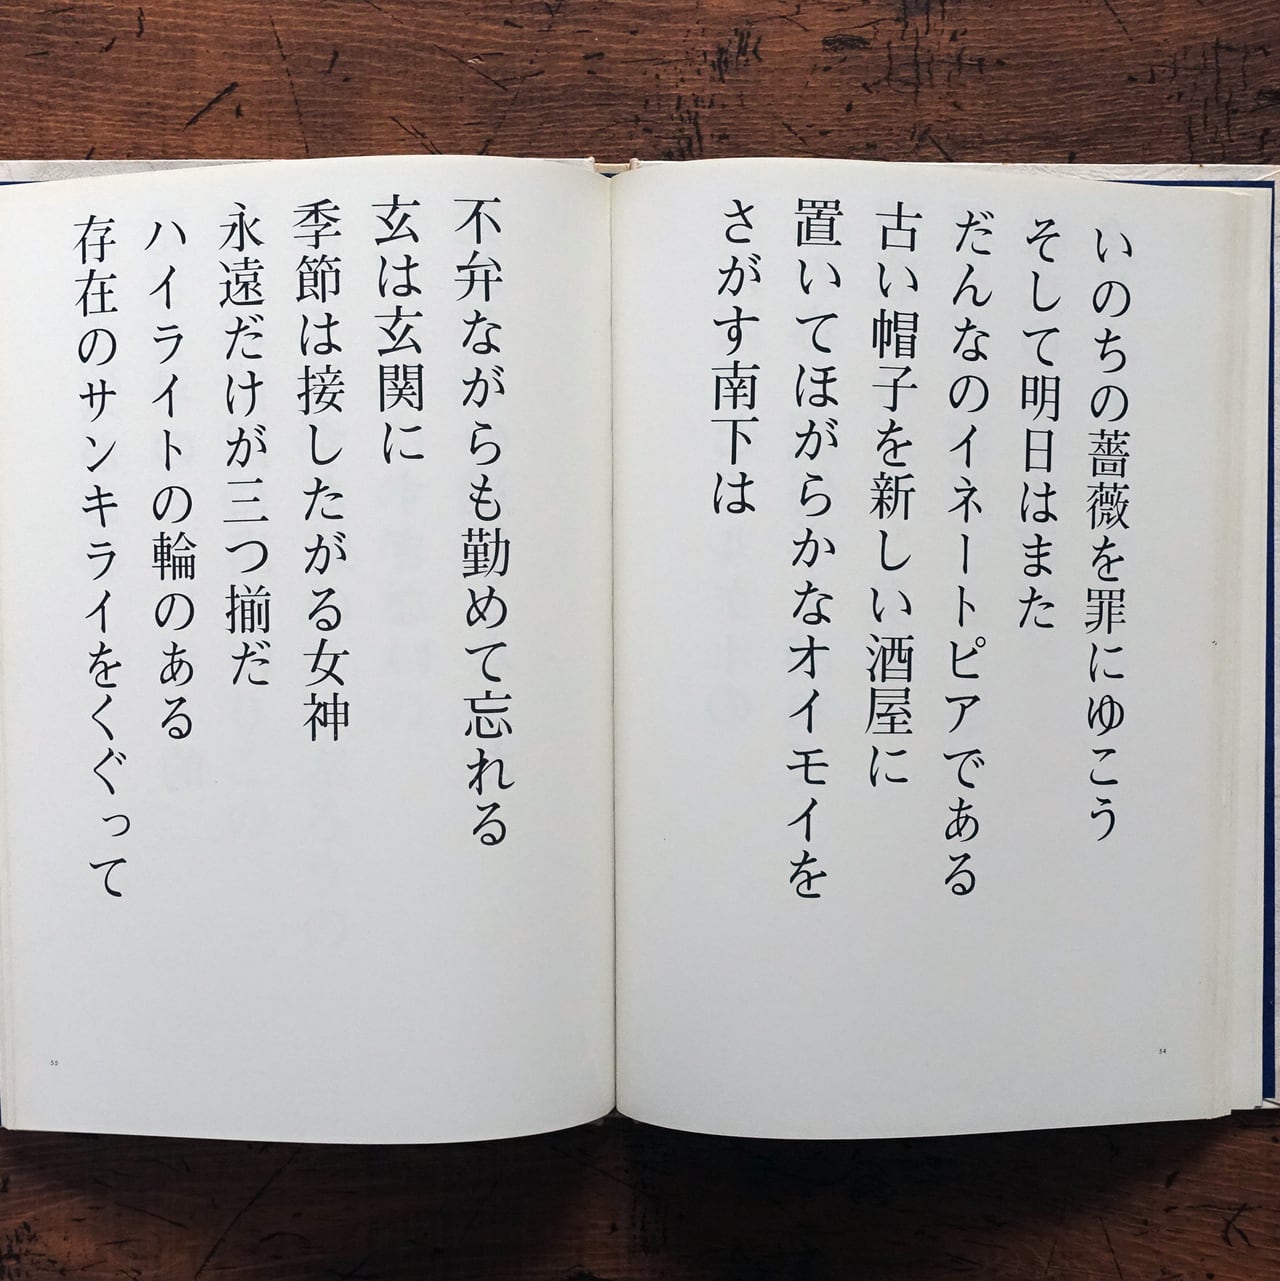 いのちの薔薇を罪にゆこう
そして明日はまた
だんなのイネートピアである
古い帽子を新しい酒屋に
置いてほがらかなオイモイを
さがす南下は
54
不弁ながらも勤めて忘れる
玄は玄関に
季節は接したがる女神
永遠だけが三つ揃だ
ハイライトの輪のある
存在のサンキライをくぐって
55